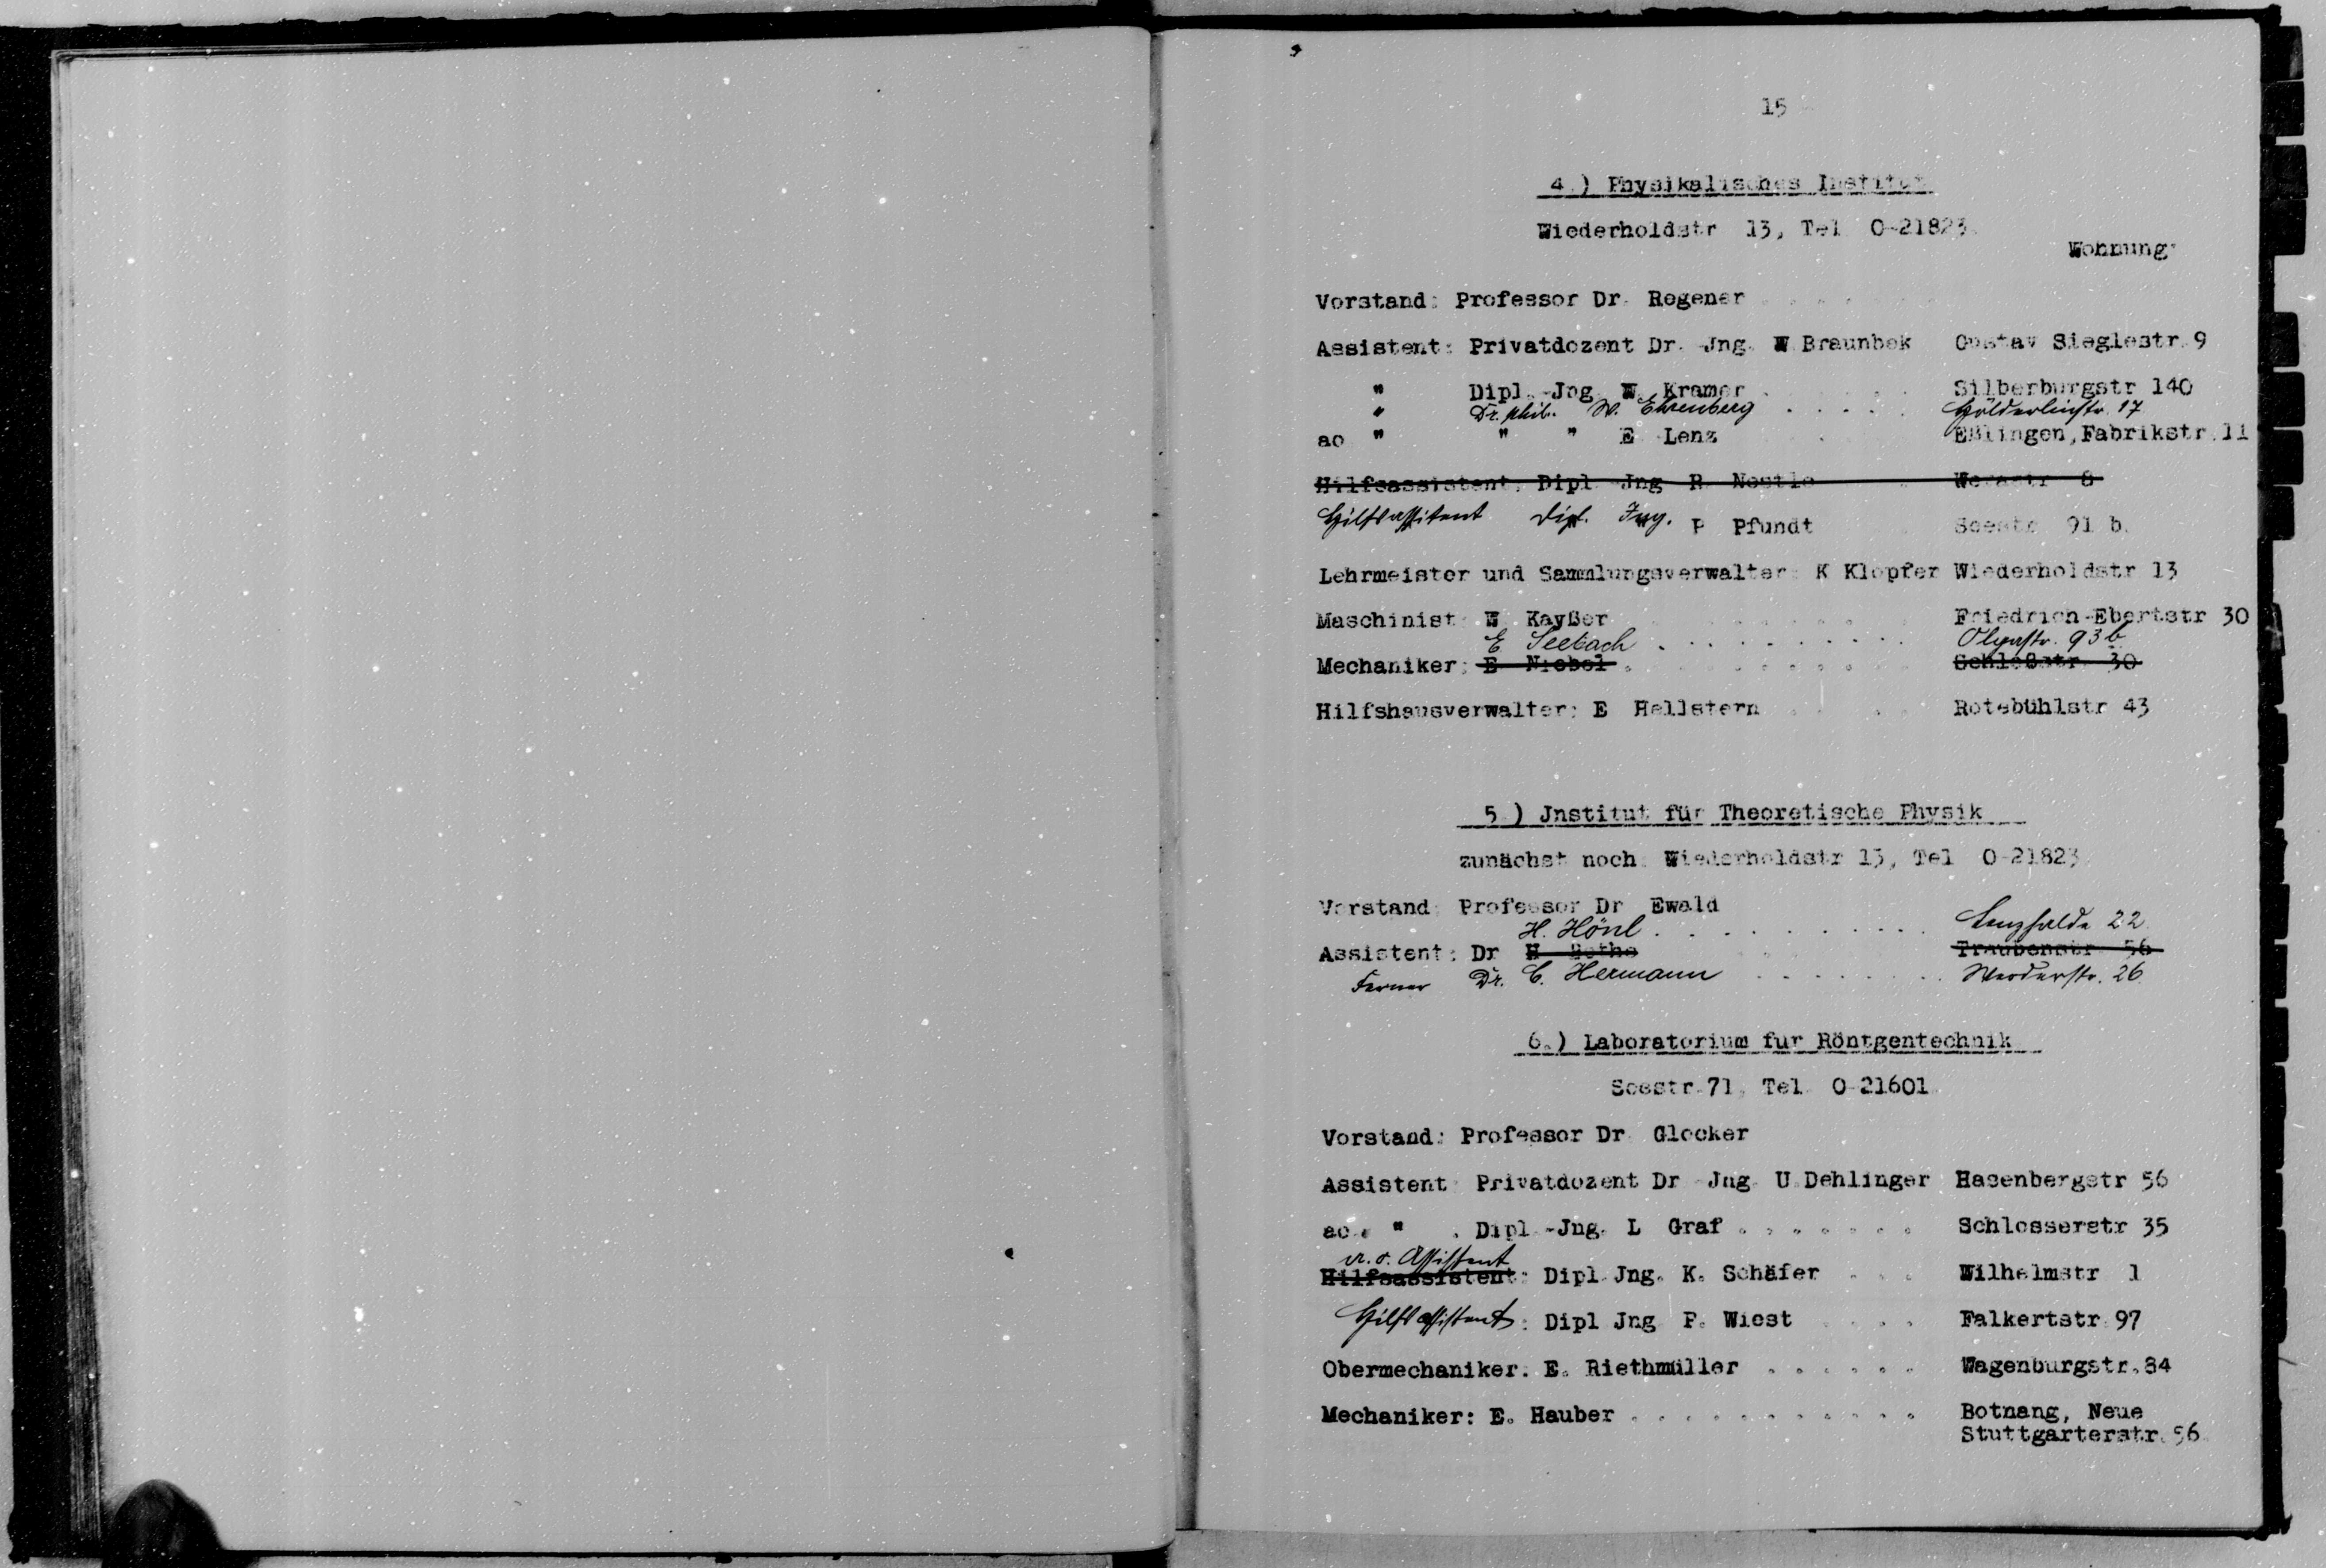 15
4.) Physikalisches Institut
Wiederholdstr 13, Tel 0-21823
Wohnung:
Vorstand: Professor Dr. Regener
Assistent: Privatdozent Dr. Jng. W.Braunbek Gustav Sieglestr.9
" Dipl.-Jng. W. Kramer Silberburgstr 140
" Dr. phil. W. Ehrenberg . . . . . Hölderlinstr. 17
ao " " " E Lenz Eßlingen,Fabrikstr.11
Hilfsassistent: Dipl.-Jng R. Nestle Werastr 8
Hilfsassistent Dipl. Ing. P Pfundt Seestr 91 b.
Lehrmeister und Sammlungsverwalter: K Klopfer Wiederholdstr 13
Maschinist: W. Kayßer Friedrich-Ebertstr 30
E Seebach . . . . . . . . . Olgastr. 93b
Mechaniker: E Niebel Schloßstr 30
Hilfshausverwalter: E Hellstern Rotebühlstr 43
5.) Jnstitut für Theoretische Physik
zunächst noch: Wiederholdstr 13, Tel 0-21823
Vorstand: Professor Dr Ewald
H. Hönl . . . . . . . . . . Lenzhalde 22
Assistent: Dr H Bethe Traubenstr 56
Ferner Dr. C. Hermann . . . . . . . . Werderstr. 26
6.) Laboratorium fur Röntgentechnik
Seestr.71, Tel. 0-21601
Vorstand: Professor Dr Glocker
Assistent: Privatdozent Dr.-Jng. U.Dehlinger Hasenbergstr 56
ao. " . Dipl.-Jng. L Graf . . . . . . . Schlosserstr 35
a. o. Assistent
Hilfsassistent: Dipl.Jng. K. Schäfer . . . Wilhelmstr 1
Hilfsassistent: Dipl Jng P. Wiest . . . . Falkertstr.97
Obermechaniker: E. Riethmüller . . . . . . Wagenburgstr.84
Mechaniker: E. Hauber . . . . . . . . . . . Botnang, Neue
Stuttgarterstr.56